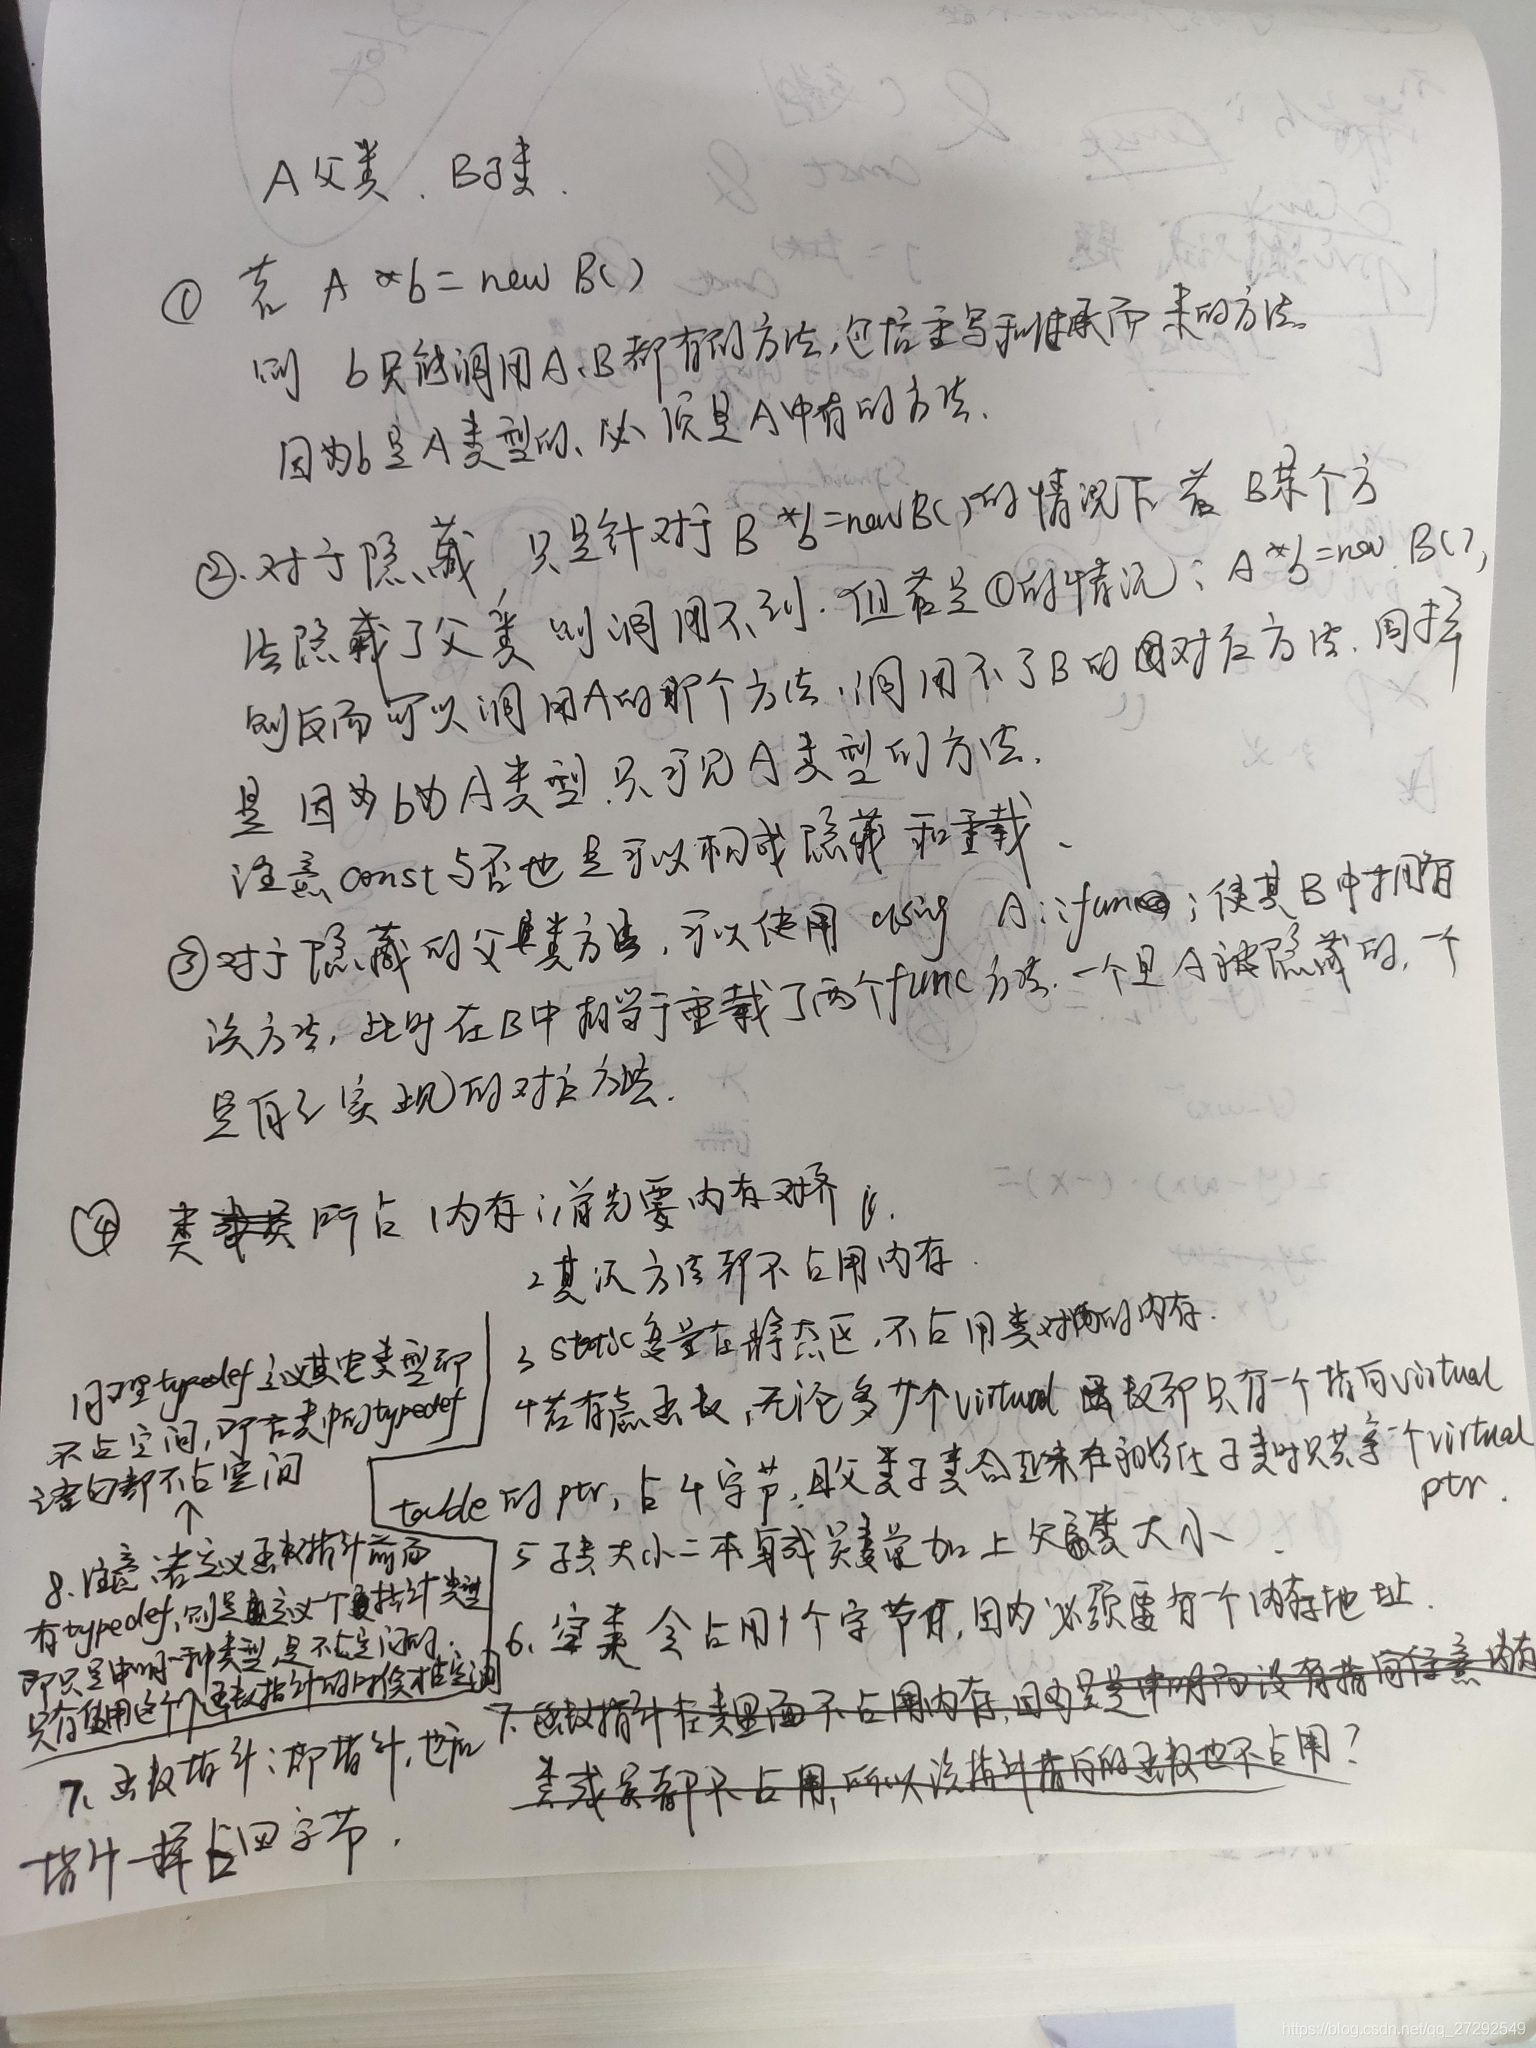 A父类、B子类.
① 若 A *b = new B()
则 b只能调用A、B都有的方法,包括重写和继承而来的方法。
因为b是A类型的、必须是A中有的方法.
②.对于隐藏,只是针对于B *b=new B()的情况下若B某个方
法隐藏了父类,则调用不到.但若是①的情况:A *b=new B(),
则反而可以调用A的那个方法,调用不了B的对应方法.同样
是因为b为A类型.只可见A类型的方法.
注意const与否也是可以构成隐藏和重载、
③对于隐藏的父类方法,可以使用using A::func;使其B中拥有
该方法,此时在B中相当于重载了两个func方法.一个是A被隐藏的,一个
是自己实现的对应方法.
④ 类所占内存:1,首先要内存对齐.
2其次方法都不占用内存.
3 static变量在静态区,不占用类对象的内存.
4若有虚函数,无论多少个virtual函数都只有一个指向virtual
table的ptr,占4字节,且父类子类合起来在初始化子类时只共享一个virtual
ptr.
5子类大小=本身成员变量加上父类大小.
6、空类会占用1个字节,因为必须要有一个内存地址.
7.函数指针在类里面不占用内存,因为只是申明而没有指向任意内存
类成员都不占用,所以该指针指向的函数也不占用?
7、函数指针:即指针,也和
指针一样占四字节.
8.注意:若定义函数指针前面
有typedef,则是定义一个指针类型
即只是申明一种类型,是不占空间的.
只有使用这个函数指针的时候才占空间
↑
同理typedef定义其它类型都
不占空间,即在类中的typedef
语句都不占空间
https://blog.csdn.net/qq_27292549